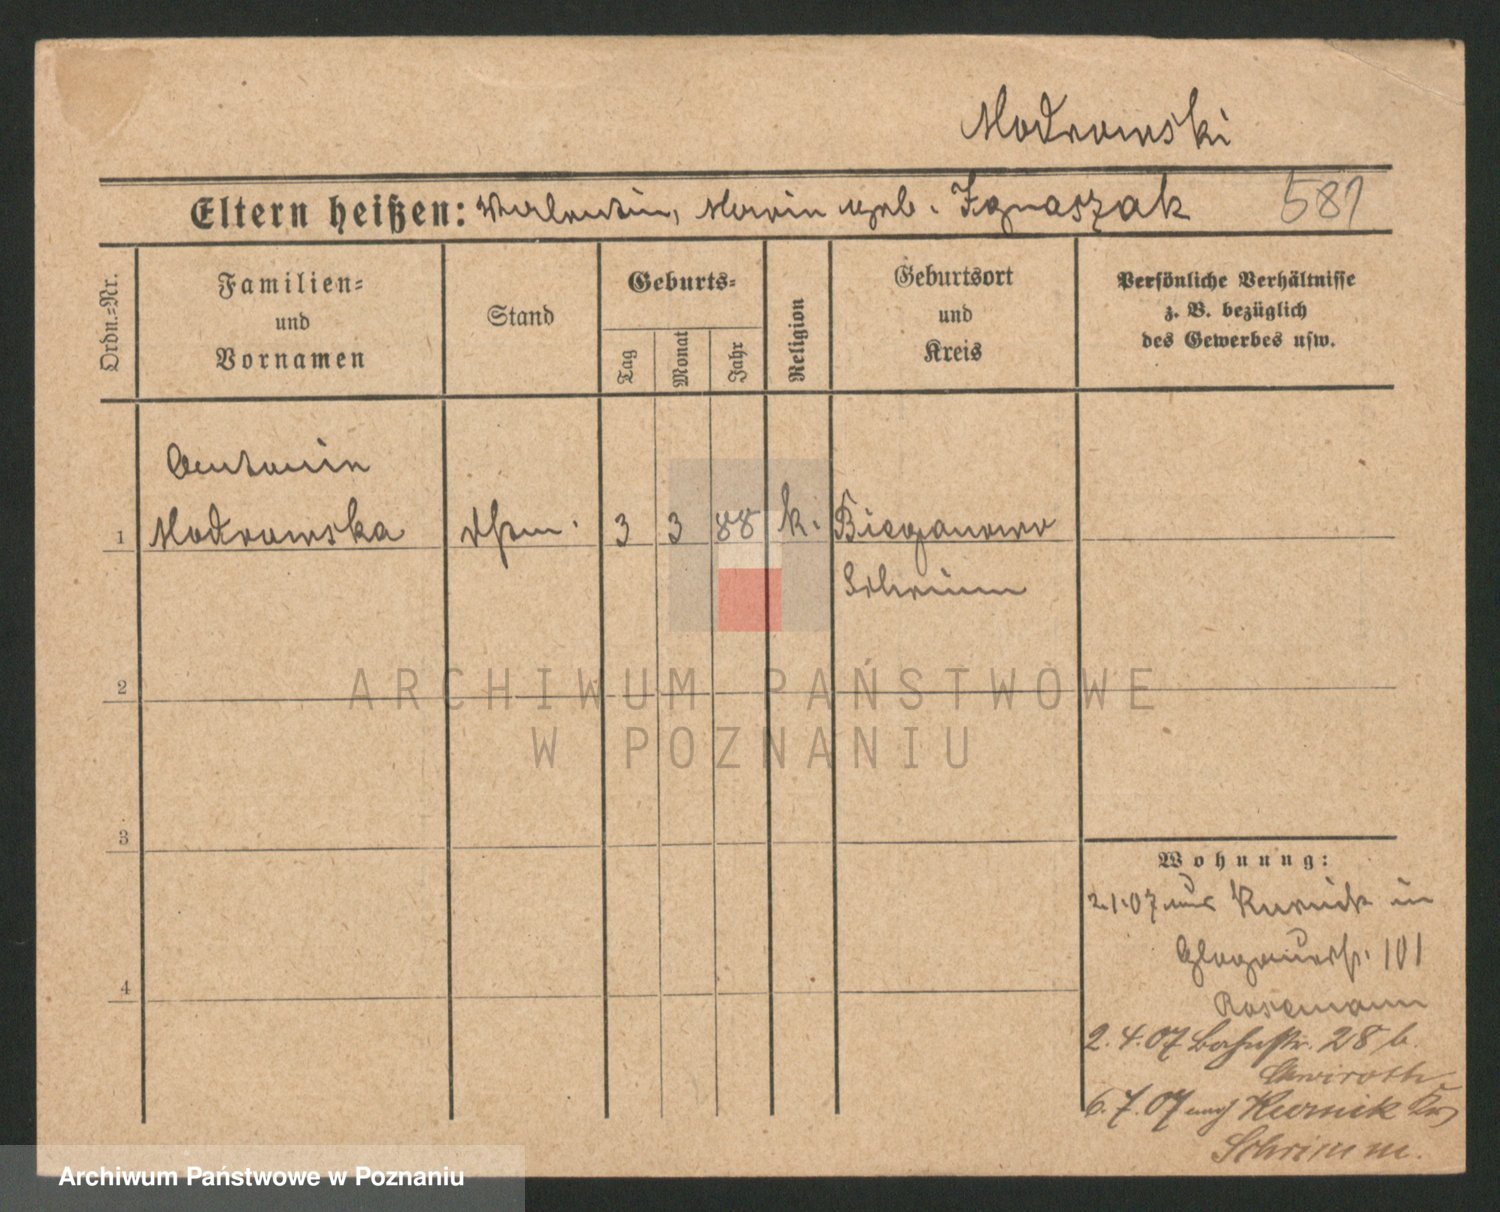 Modrowski
Eltern heißen: Valentin, Marie geb. Ignaszak 581
Ordn.-Nr.
Familien-
und
Vornamen
Stand
Geburts-
Tag
Monat
Jahr
Religion
Geburtsort
und
Kreis
Persönliche Verhältnisse
z. B. bezüglich
des Gewerbes usw.
Antonie
1 Modrowska 3 3 88 k. Bieganowo
Schrimm
2
3
4
Wohnung:
2.1.07 aus Kurnik in
Glogauerstr. 101
Rosemann
2.4.07 Bahnstr. 28 b.
6.7.07 nach Kurnik Kr
Schrimm.
ARCHIWUM PAŃSTWOWE
W POZNANIU
Archiwum Państwowe w Poznaniu